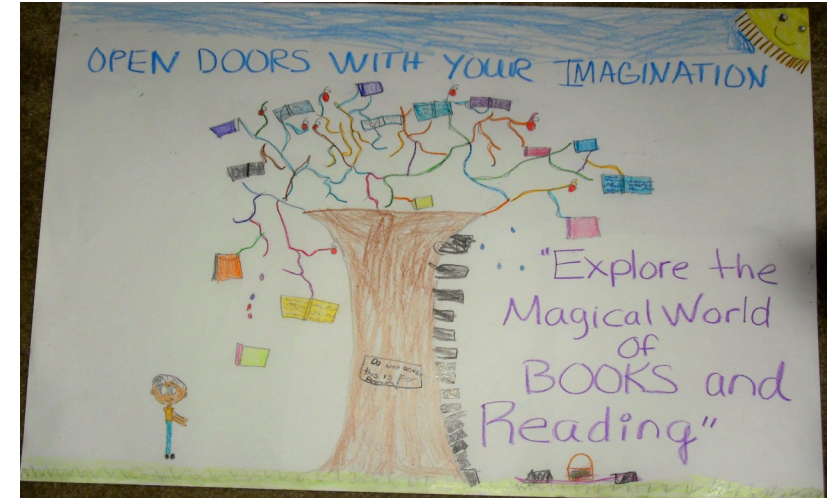 OPEN DOORS WITH YOUR IMAGINATION
"Explore the
Magical World
of
BOOKS and
Reading"
Do not
this is for